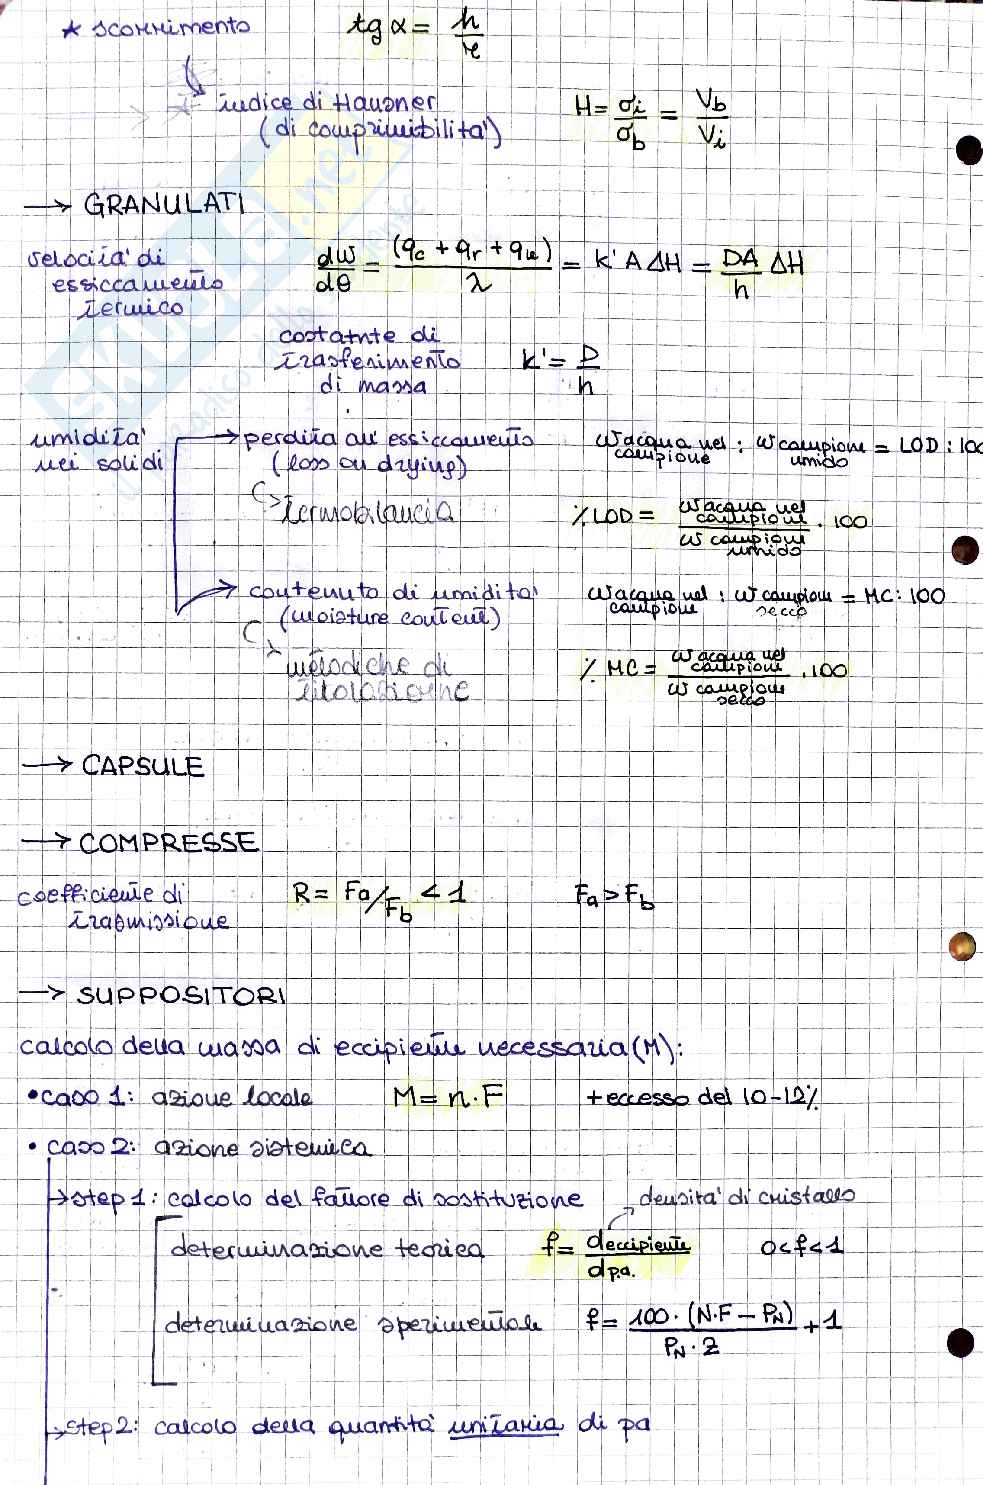 ★ scorrimento tg α = h/r
indice di Hausner H = σi/σb = Vb/Vi
(di comprimibilità)
→ GRANULATI
velocità di essiccamento termico dw/dθ = (qc + qr + qk)/λ = K'A ΔH = DA/h ΔH
costatnte di trasferimento di massa K' = D/h
umidità nei solidi
→ perdita all'essiccamento w acqua nel campione : w campione umido = LOD : 100
(loss on drying)
↳ termobilancia % LOD = w acqua nel campione / w campione umido · 100
→ contenuto di umidità w acqua nel campione : w campione secco = MC : 100
(moisture content)
↳ metodiche di titolazione % MC = w acqua nel campione / w campione secco · 100
→ CAPSULE
→ COMPRESSE
coefficiente di trasmissione R = Fa/Fb < 1 Fa > Fb
→ SUPPOSITORI
calcolo della massa di eccipiente necessaria (M):
• caso 1: azione locale M = n · F + eccesso del 10-12%
• caso 2: azione sistemica
→ step 1: calcolo del fattore di sostituzione densità di cristallo
determinazione teorica f = d eccipiente / d p.a. 0 < f < 1
determinazione sperimentale f = 100 · (N·F − PN) / PN · Z + 1
→ step 2: calcolo della quantità unitaria di pa